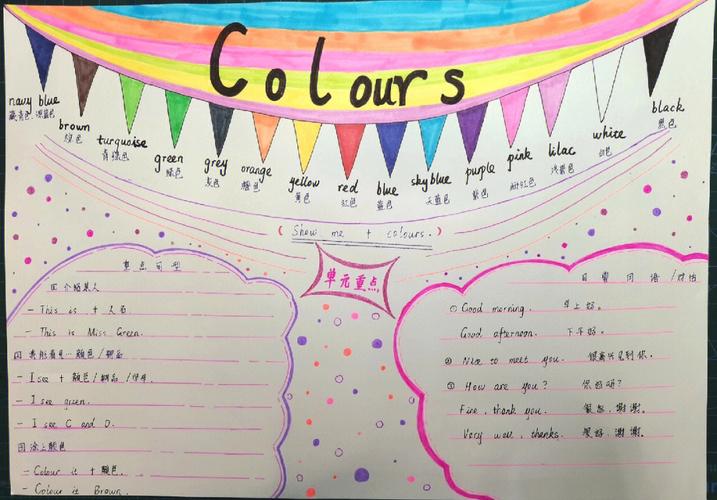 Colours
navy blue
藏青色 深蓝色
brown
棕色
turquoise
青绿色
green
绿色
grey
灰色
orange
橙色
yellow
黄色
red
红色
blue
蓝色
sky blue
天蓝色
purple
紫色
pink
粉红色
lilac
浅紫色
white
白色
black
黑色
( Show me + colours. )
单元重点
重点句型
介绍某人
- This is + 人名.
- This is Miss Green.
表示看见… 颜色/物品
- I see + 颜色/物品/字母.
- I see green.
- I see C and D.
涂上颜色
- Colour it + 颜色.
- Colour it Brown.
日常用语 /对话
① Good morning. 早上好。
Good afternoon. 下午好。
② Nice to meet you. 很高兴见到你.
③ How are you? 你好吗?
Fine, thank you. 很好,谢谢。
Very well, thanks. 很好,谢谢。